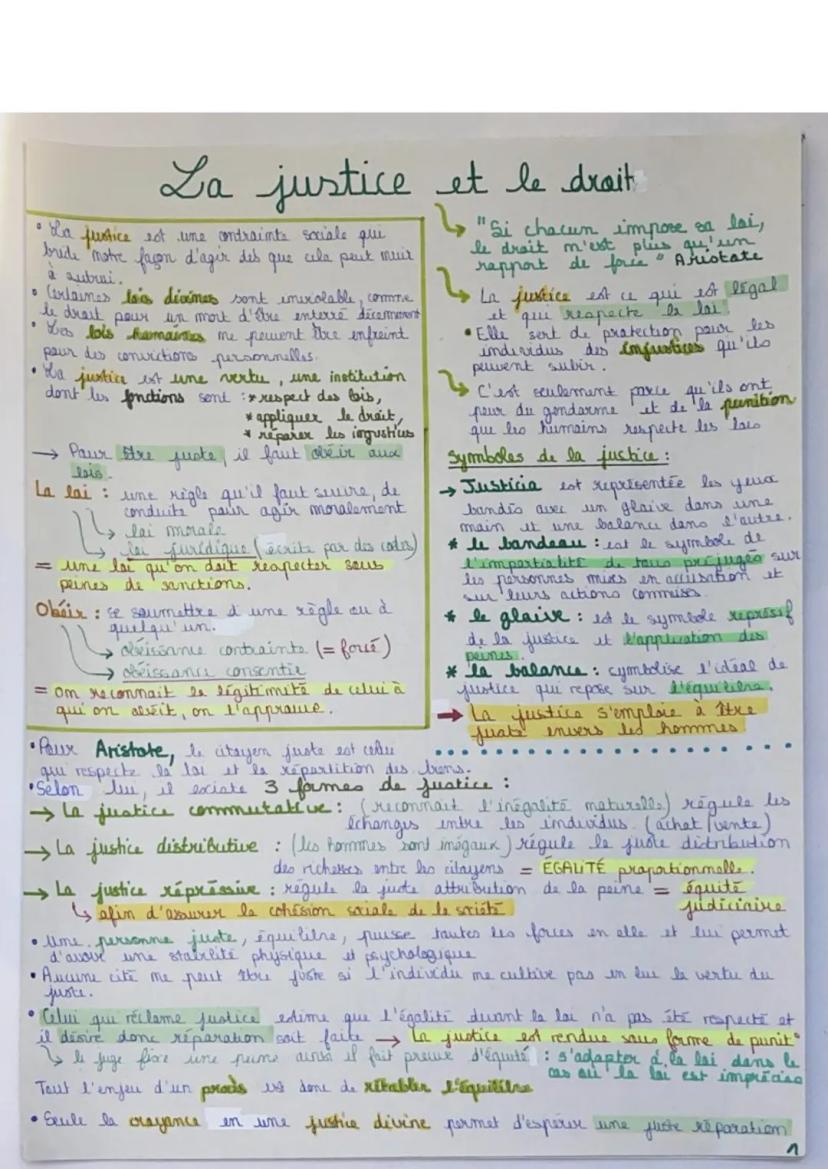 La justice et le droit
• La justice est une contrainte sociale qui
bride notre façon d'agir dès que cela peut nuir
à autrui.
• Certaines lois divines sont inviolable, comme
le droit pour un mort d'être enterré décemment
• Les lois humaines ne peuvent être enfreint
pour des convictions personnelles.
• La justice est une vertu, une institution
dont les fonctions sont : * respect des lois,
* appliquer le droit,
* réparer les injustices
→ Pour être juste, il faut obéir aux
lois.
La loi : une règle qu'il faut suivre, de
conduite pour agir moralement
↳ loi morale
↳ loi juridique (écrite par des codes)
= une loi qu'on doit respecter sous
peines de sanctions.
Obéir : se soumettre à une règle ou à
quelqu'un.
↳ obéissance contrainte (= forcé)
↳ obéissance consentie
= on reconnait la légitimité de celui à
qui on obéit, on l'approuve.
↳ "Si chacun impose sa loi,
le droit n'est plus qu'un
rapport de force" Aristote
↳ La justice est ce qui est légal
et qui respecte la loi
• Elle sert de protection pour les
individus des injustices qu'ils
peuvent subir.
↳ C'est seulement parce qu'ils ont
peur du gendarme et de la punition
que les humains respecte les lois
Symboles de la justice :
→ Justicia est représentée les yeux
bandés avec un glaive dans une
main et une balance dans l'autre.
* le bandeau : est le symbole de
l'impartialité de tous préjugés sur
les personnes mises en accusation et
sur leurs actions commises.
* le glaive : est le symbole répressif
de la justice et l'application des
peines.
* la balance : symbolise l'idéal de
justice qui repose sur l'équilibre.
→ La justice s'emploie à être
juste envers les hommes
• Pour Aristote, le citoyen juste est celui
qui respecte la loi et la répartition des biens.
• Selon lui, il existe 3 formes de justice :
→ La justice commutative : (reconnait l'inégalité naturelle) régule les
échanges entre les individus. (achat/vente)
→ La justice distributive : (les hommes sont inégaux) régule la juste distribution
des richesses entre les citoyens = ÉGALITÉ proportionnelle.
→ La justice répressive : régule la juste attribution de la peine = équité
judiciniaire
↳ afin d'assurer la cohésion sociale de la société
• Une personne juste, équilibre, puise toutes les forces en elle et lui permet
d'avoir une stabilité physique et psychologique
• Aucune cité ne peut être juste si l'individu ne cultive pas en lui la vertu du
juste.
• Celui qui réclame justice estime que l'égalité devant la loi n'a pas été respecté et
il désire donc réparation soit faite → La justice est rendue sous forme de punit°
↳ le juge fixe une peine ainsi il fait preuve d'équité : s'adapter à la loi dans le
cas où la loi est imprécise
Tout l'enjeu d'un procès est donc de rétablir l'équilibre
• Seule la croyance en une justice divine permet d'espérer une juste réparation
1